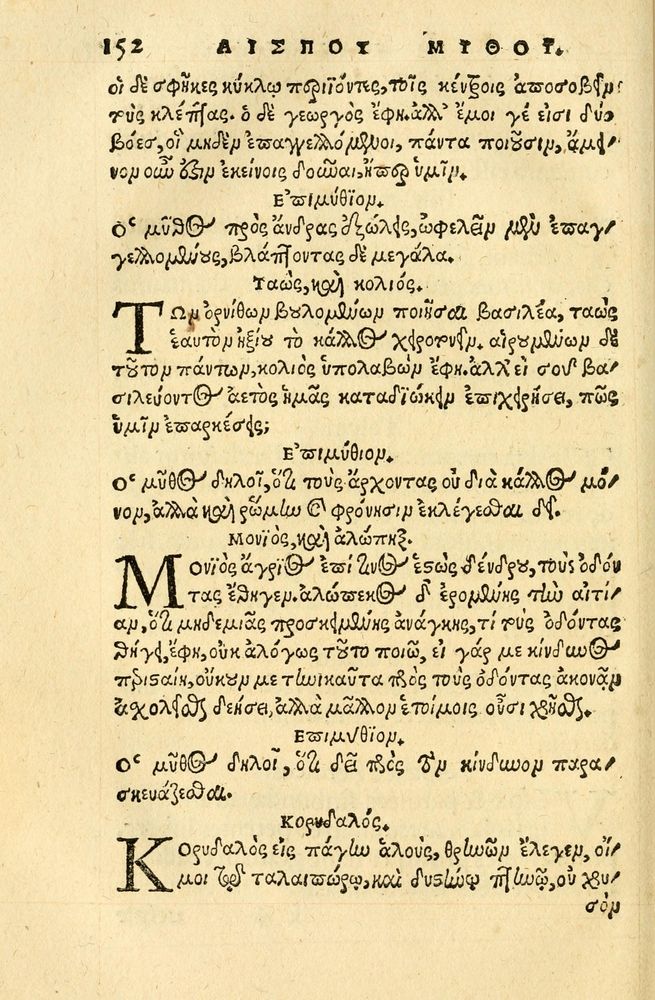 152 ΑΙΣΠΟΥ ΜΥΘΟΙ.
οἱ δὲ σφῆκες κύκλῳ περιϊόντες, τοῖς κέντροις ἀποσοβεῖν
τοὺς κλέπτας. ὁ δὲ γεωργὸς ἔφη. ἀλλ' ἔμοι γέ εἰσι δύο
βόες, οἳ μηδὲν ἐπαγγελλόμενοι, πάντα ποιοῦσιν, ἄμει/
νον οὖν ὅξιν ἐκείνοις δοῦναι, ἤπερ ὑμῖν.
Ἐπιμύθϊον.
Ὁ μῦθος πρὸς ἄνδρας ἐξώλεις, ὠφελεῖν μὲν ἐπαγ/
γελλομένους, βλάπτοντας δὲ μεγάλα.
Ταὼς, καὶ κολιός.
ΤΩν ὀρνίθων βουλομένων ποιῆσαι βασιλέα, ταὼς
ἑαυτὸν ἠξίου τὸ κάλλος χειροτονεῖν. αἱρουμένων δὲ
τοῦτον πάντων, κολιὸς ὑπολαβὼν ἔφη. ἀλλ' εἰ σοῦ βα/
σιλεύοντος ἀετὸς ἡμᾶς καταδϊώκειν ἐπιχειρήσει, πῶς
ὑμῖν ἐπαρκέσεις;
Ἐπιμύθιον.
Ὁ μῦθος δηλοῖ, ὅτι τοὺς ἄρχοντας οὐ διὰ κάλλος μό/
νον, ἀλλὰ καὶ ῥώμην καὶ φρόνησιν ἐκλέγεσθαι δεῖ.
Μονϊὸς, καὶ ἀλώπηξ.
ΜΟνϊὸς ἄγριος ἐπί τινος ἑστὼς δένδρου, τοὺς ὀδόν
τας ἔθηγεν. ἀλώπεκος δ' ἐρομένης τὴν αἰτί/
αν, ὅτι μηδεμιᾶς προσκειμένης ἀνάγκης, τί τοὺς ὀδόντας
θήγει, ἔφη, οὐκ ἀλόγως τοῦτο ποιῶ, εἰ γάρ με κίνδυνος
περισταίη, οὐκοῦν με τηνικαῦτα πρὸς τοὺς ὀδόντας ἀκονᾶν
ἀσχολεῖσθαι δεήσει, ἀλλὰ μᾶλλον ἑτοίμοις οὖσι χρῆσθαι.
Ἐπιμύθϊον.
Ὁ μῦθος δηλοῖ, ὅτι δεῖ πρὸς τὸν κίνδυνον παρα/
σκευάζεσθαι.
Κορυδαλός.
ΚΟρυδαλὸς εἰς πάγην ἁλοὺς, θρηνῶν ἔλεγεν, οἴ/
μοι τῷ ταλαιπώρῳ, καὶ δυστήνῳ πτηνῷ, οὐ χρυ/
σὸν